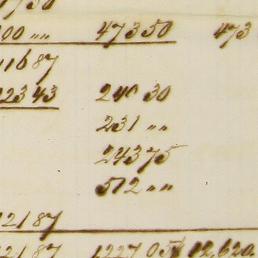 00 " 473 50 473
1187
223 43 240 30
231 "
243 75
512 "
2187
2187 1227 05 12,620